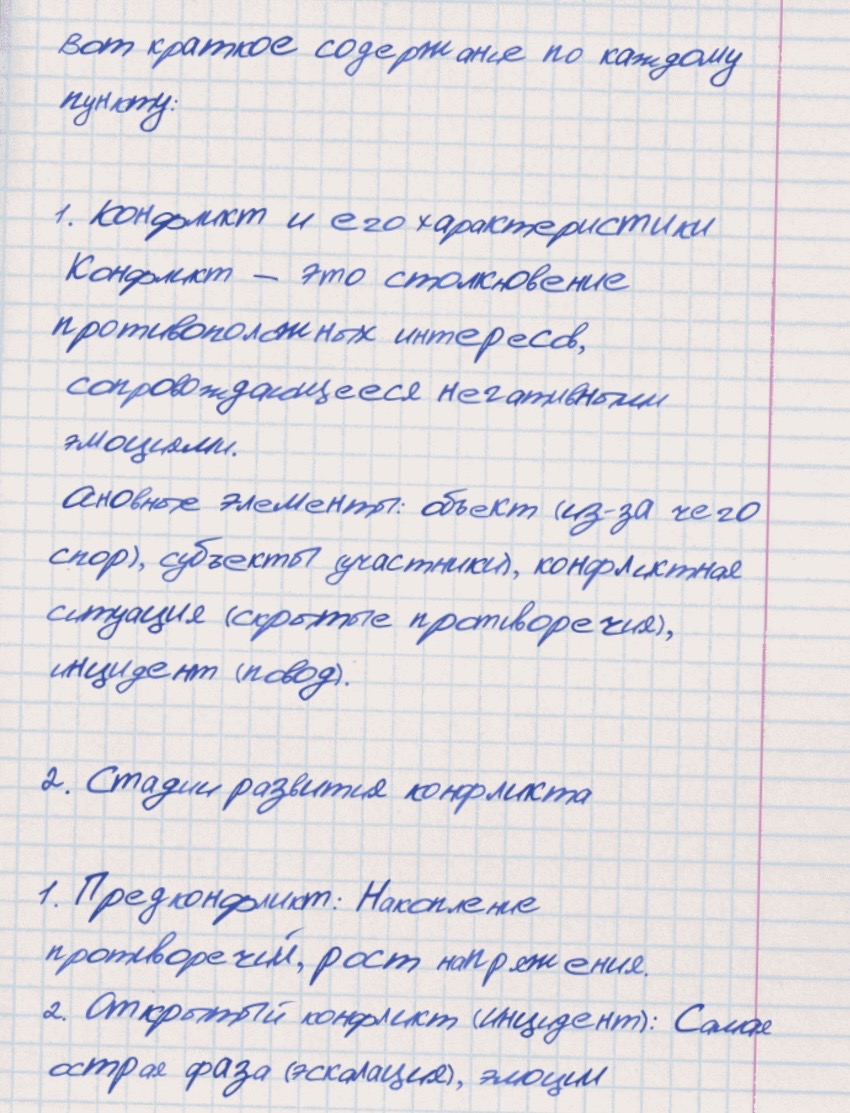 Вот краткое содержание по каждому
пункту:
1. Конфликт и его характеристики
Конфликт — это столкновение
противоположных интересов,
сопровождающееся негативными
эмоциями.
Основные элементы: объект (из-за чего
спор), субъекты (участники), конфликтная
ситуация (скрытые противоречия),
инцидент (повод).
2. Стадии развития конфликта
1. Предконфликт: Накопление
противоречий, рост напряжения.
2. Открытый конфликт (инцидент): Самая
острая фаза (эскалация), эмоции